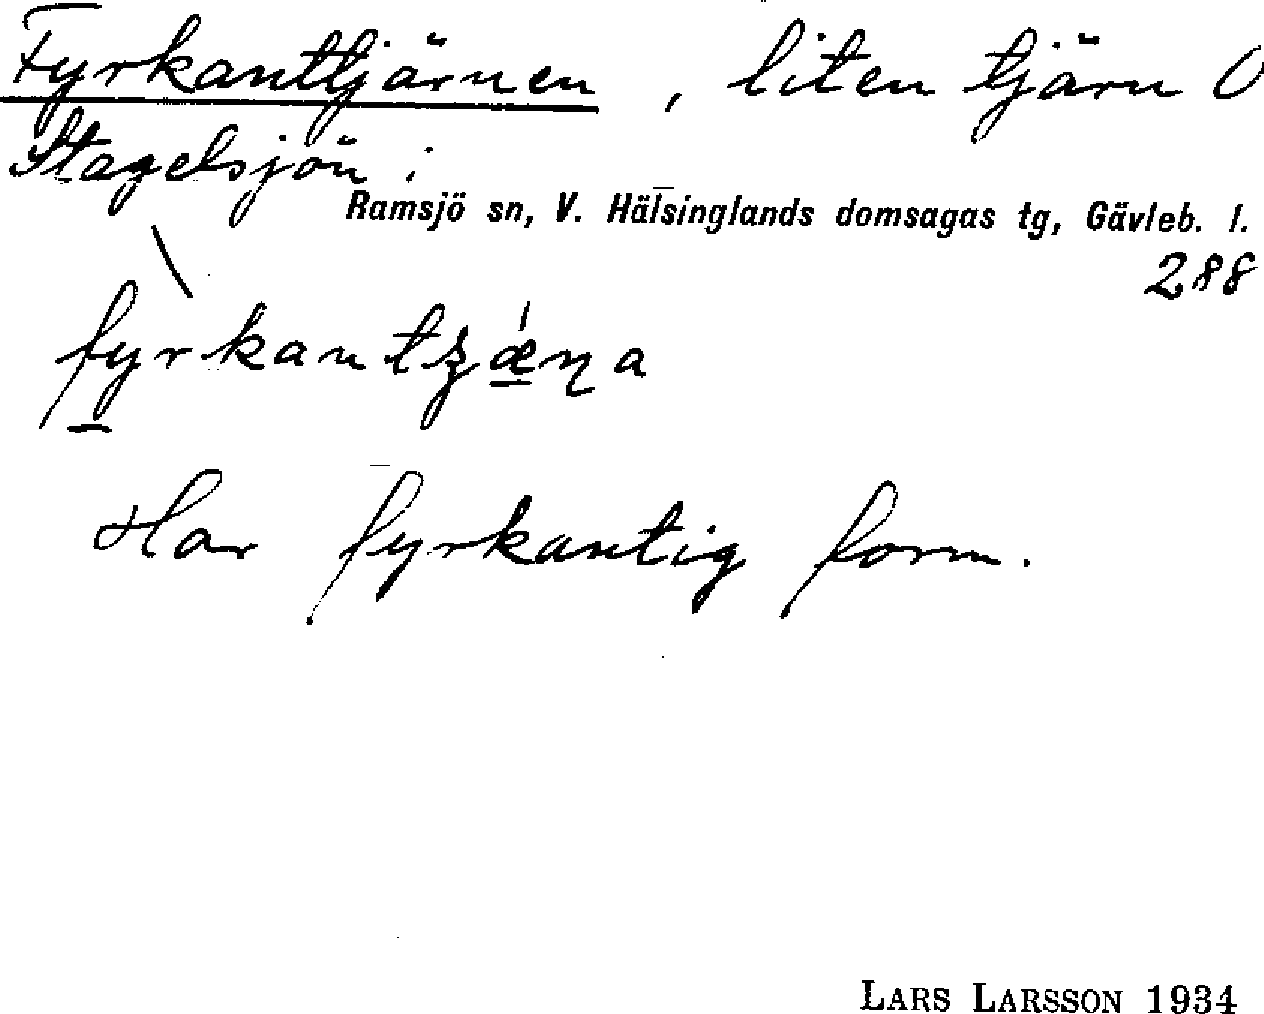 Fyrkanttjärnen, liten tjärn O
Stagelsjön i
Ramsjö sn, V. Hälsinglands domsagas tg, Gävleb. l.
288
Har fyrkantig form.
LARS LARSSON 1934